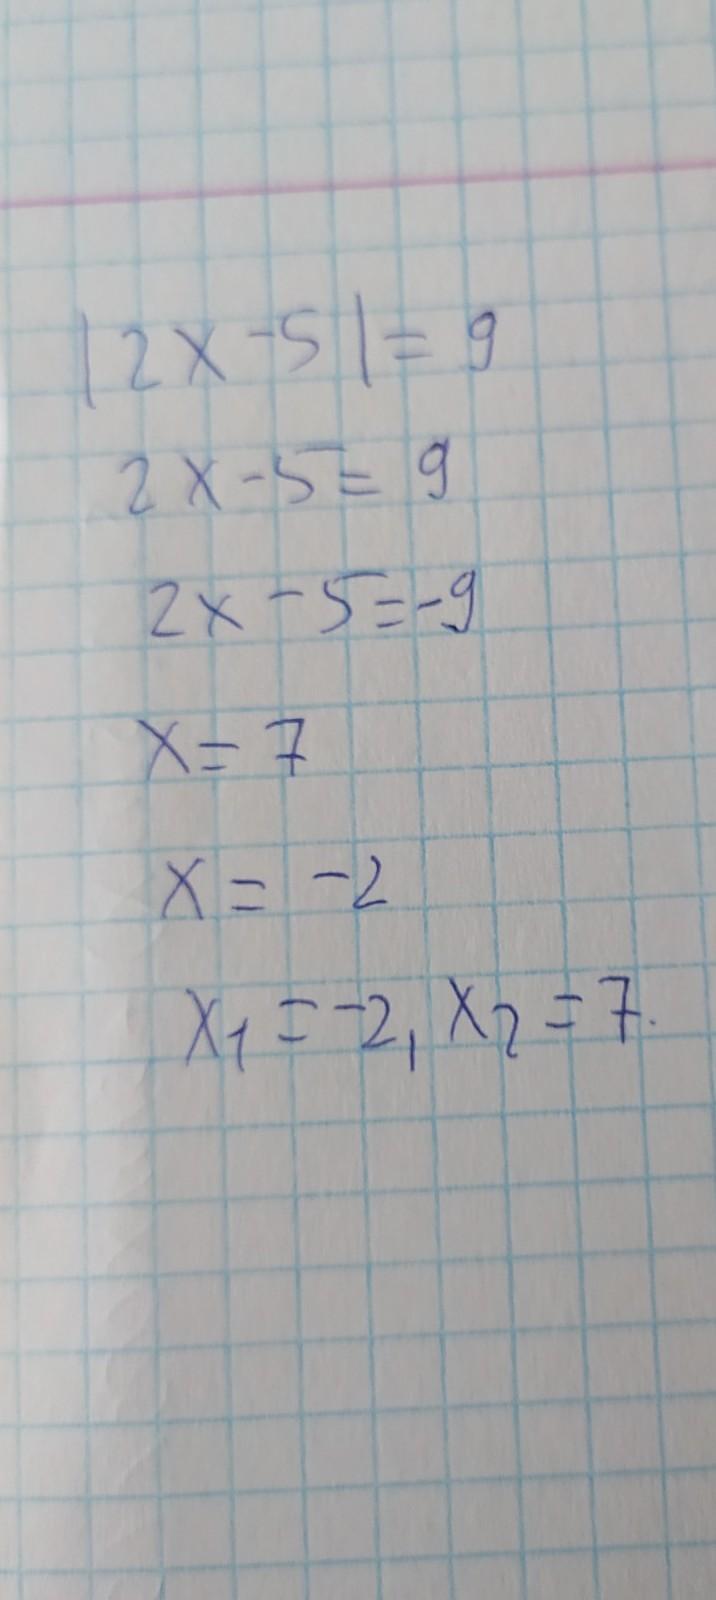 |2x-5|= 9
2x-5= 9
2x-5=-9
x= 7
x= -2
x₁=-2, x₂=7.